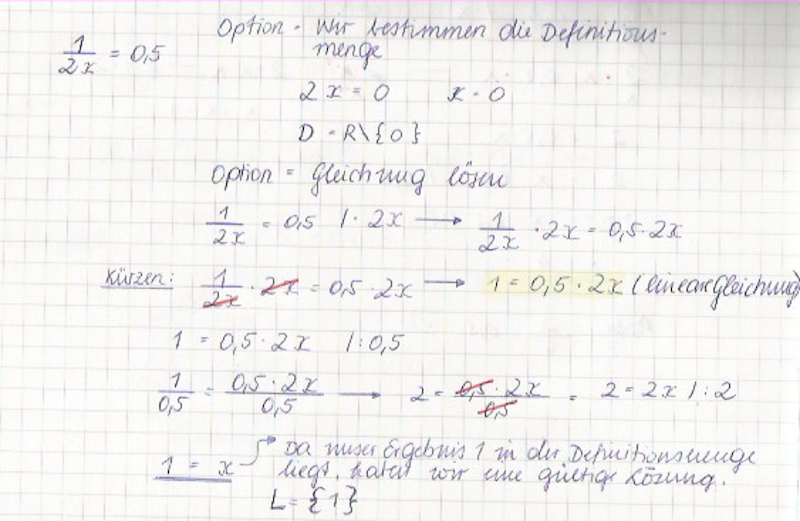 1/2x = 0,5
Option - Wir bestimmen die Definitions-
menge
2x = 0 x = 0
D = R\{0}
Option = Gleichung lösen
1/2x = 0,5 | · 2x → 1/2x · 2x = 0,5 · 2x
Kürzen: 1/2x · 2x = 0,5 · 2x → 1 = 0,5 · 2x (lineare Gleichung)
1 = 0,5 · 2x | : 0,5
1/0,5 = 0,5 · 2x/0,5 → 2 = 0,5 · 2x/0,5 = 2 = 2x | : 2
1 = x → Da unser Ergebnis 1 in der Definitionsmenge
liegt, haben wir eine gültige Lösung.
L = {1}